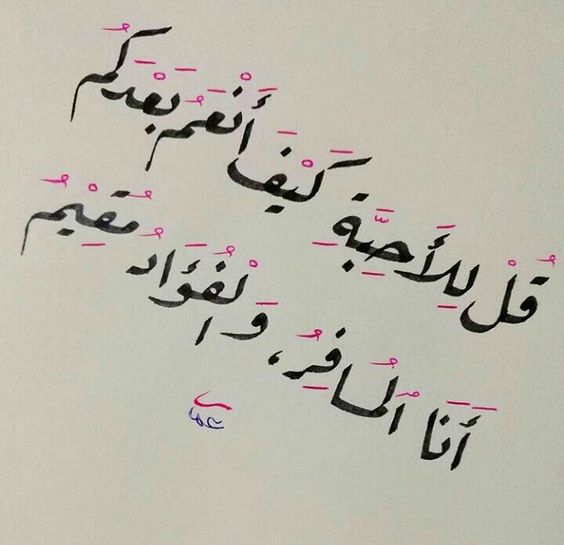 قُلْ لِلأَحِبَّةِ كَيْفَ أَنْعَمُ بَعْدَكُم
أَنَا المُسَافِرُ، وَالْفُؤَادُ مُقِيْمُ